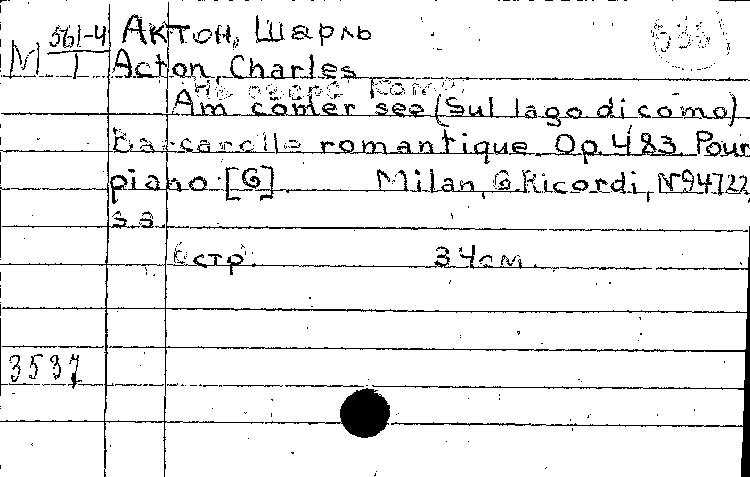 М 561-4/1 Актон, Шарль
Acton, Charles
На озере Комо.
Am comer see (Sul lago di como)
Barcarella romantique. Op. 483. Pour
piano. [G]. Milan, G. Ricordi, N94722,
s.a.
6 стр. 34 см.
3537